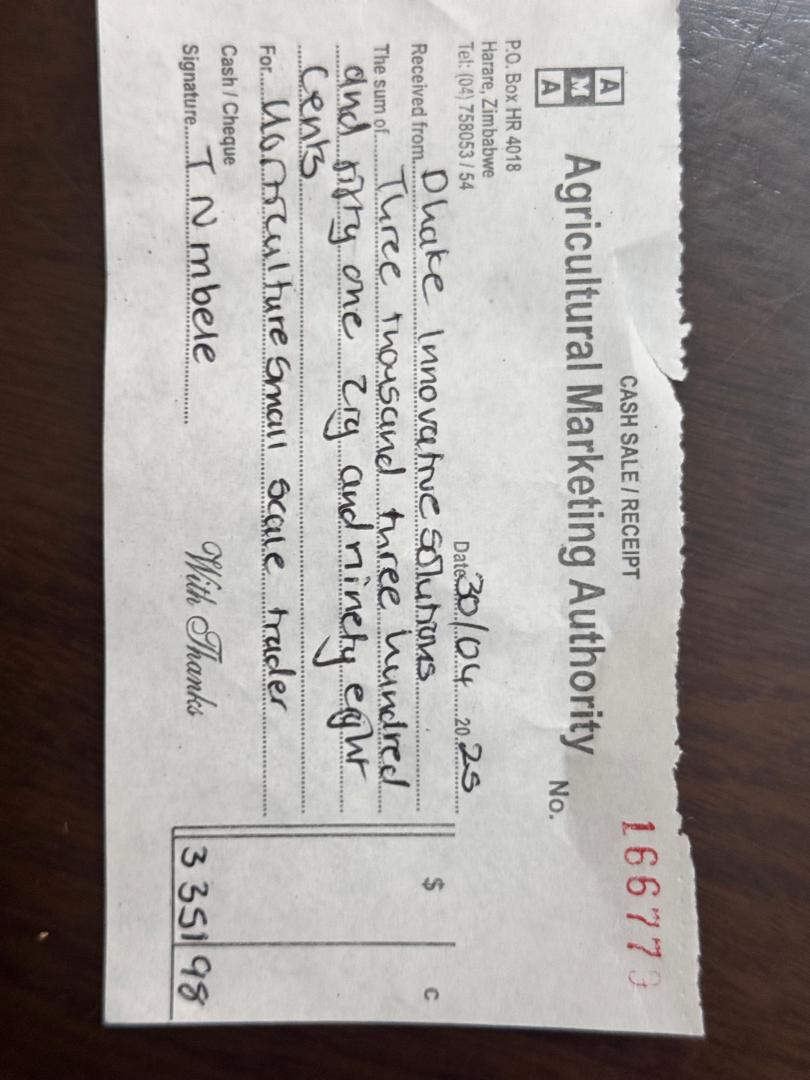 CASH SALE / RECEIPT
A M A
Agricultural Marketing Authority
No. 166773
P.O. Box HR 4018
Harare, Zimbabwe
Tel: (04) 758053 / 54
Date 30/04 2025
Received from Dhake Innovative solutions
The sum of Three thousand three hundred
and fifty one Zig and ninety eight
Cents
For Horticulture small scale trader
Cash / Cheque
Signature T N mbele
With Thanks
$ C
3351 98